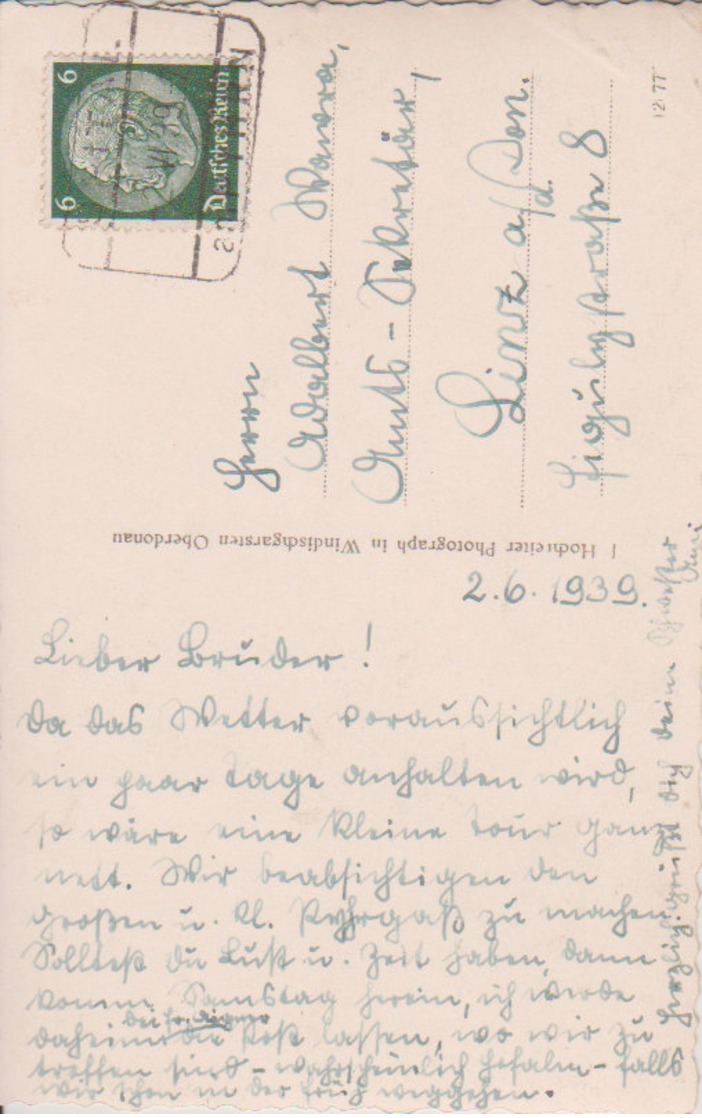 6
6
Deutsches Reich
Herrn
Adalbert Wawra,
Amts-Sekretär,
Linz a/d. Don.
straße 8
12 77
Hochreiter Photograph in Windischgarsten Oberdonau
2.6.1939.
Lieber Bruder!
Da das Wetter voraussichtlich
ein paar Tage anhalten wird,
so wäre eine kleine Tour ganz
nett. Wir beabsichtigen den
großen u. kl. Pyhrgaß zu machen.
Solltest Du Lust u. Zeit haben, dann
komme Samstag herein, ich werde
daheim die Post lassen, wo wir zu
treffen sind – wahrscheinlich Hofalm – falls
wir schon in der Früh weggehen.
Herzlich grüßt Dich Deine Schwester